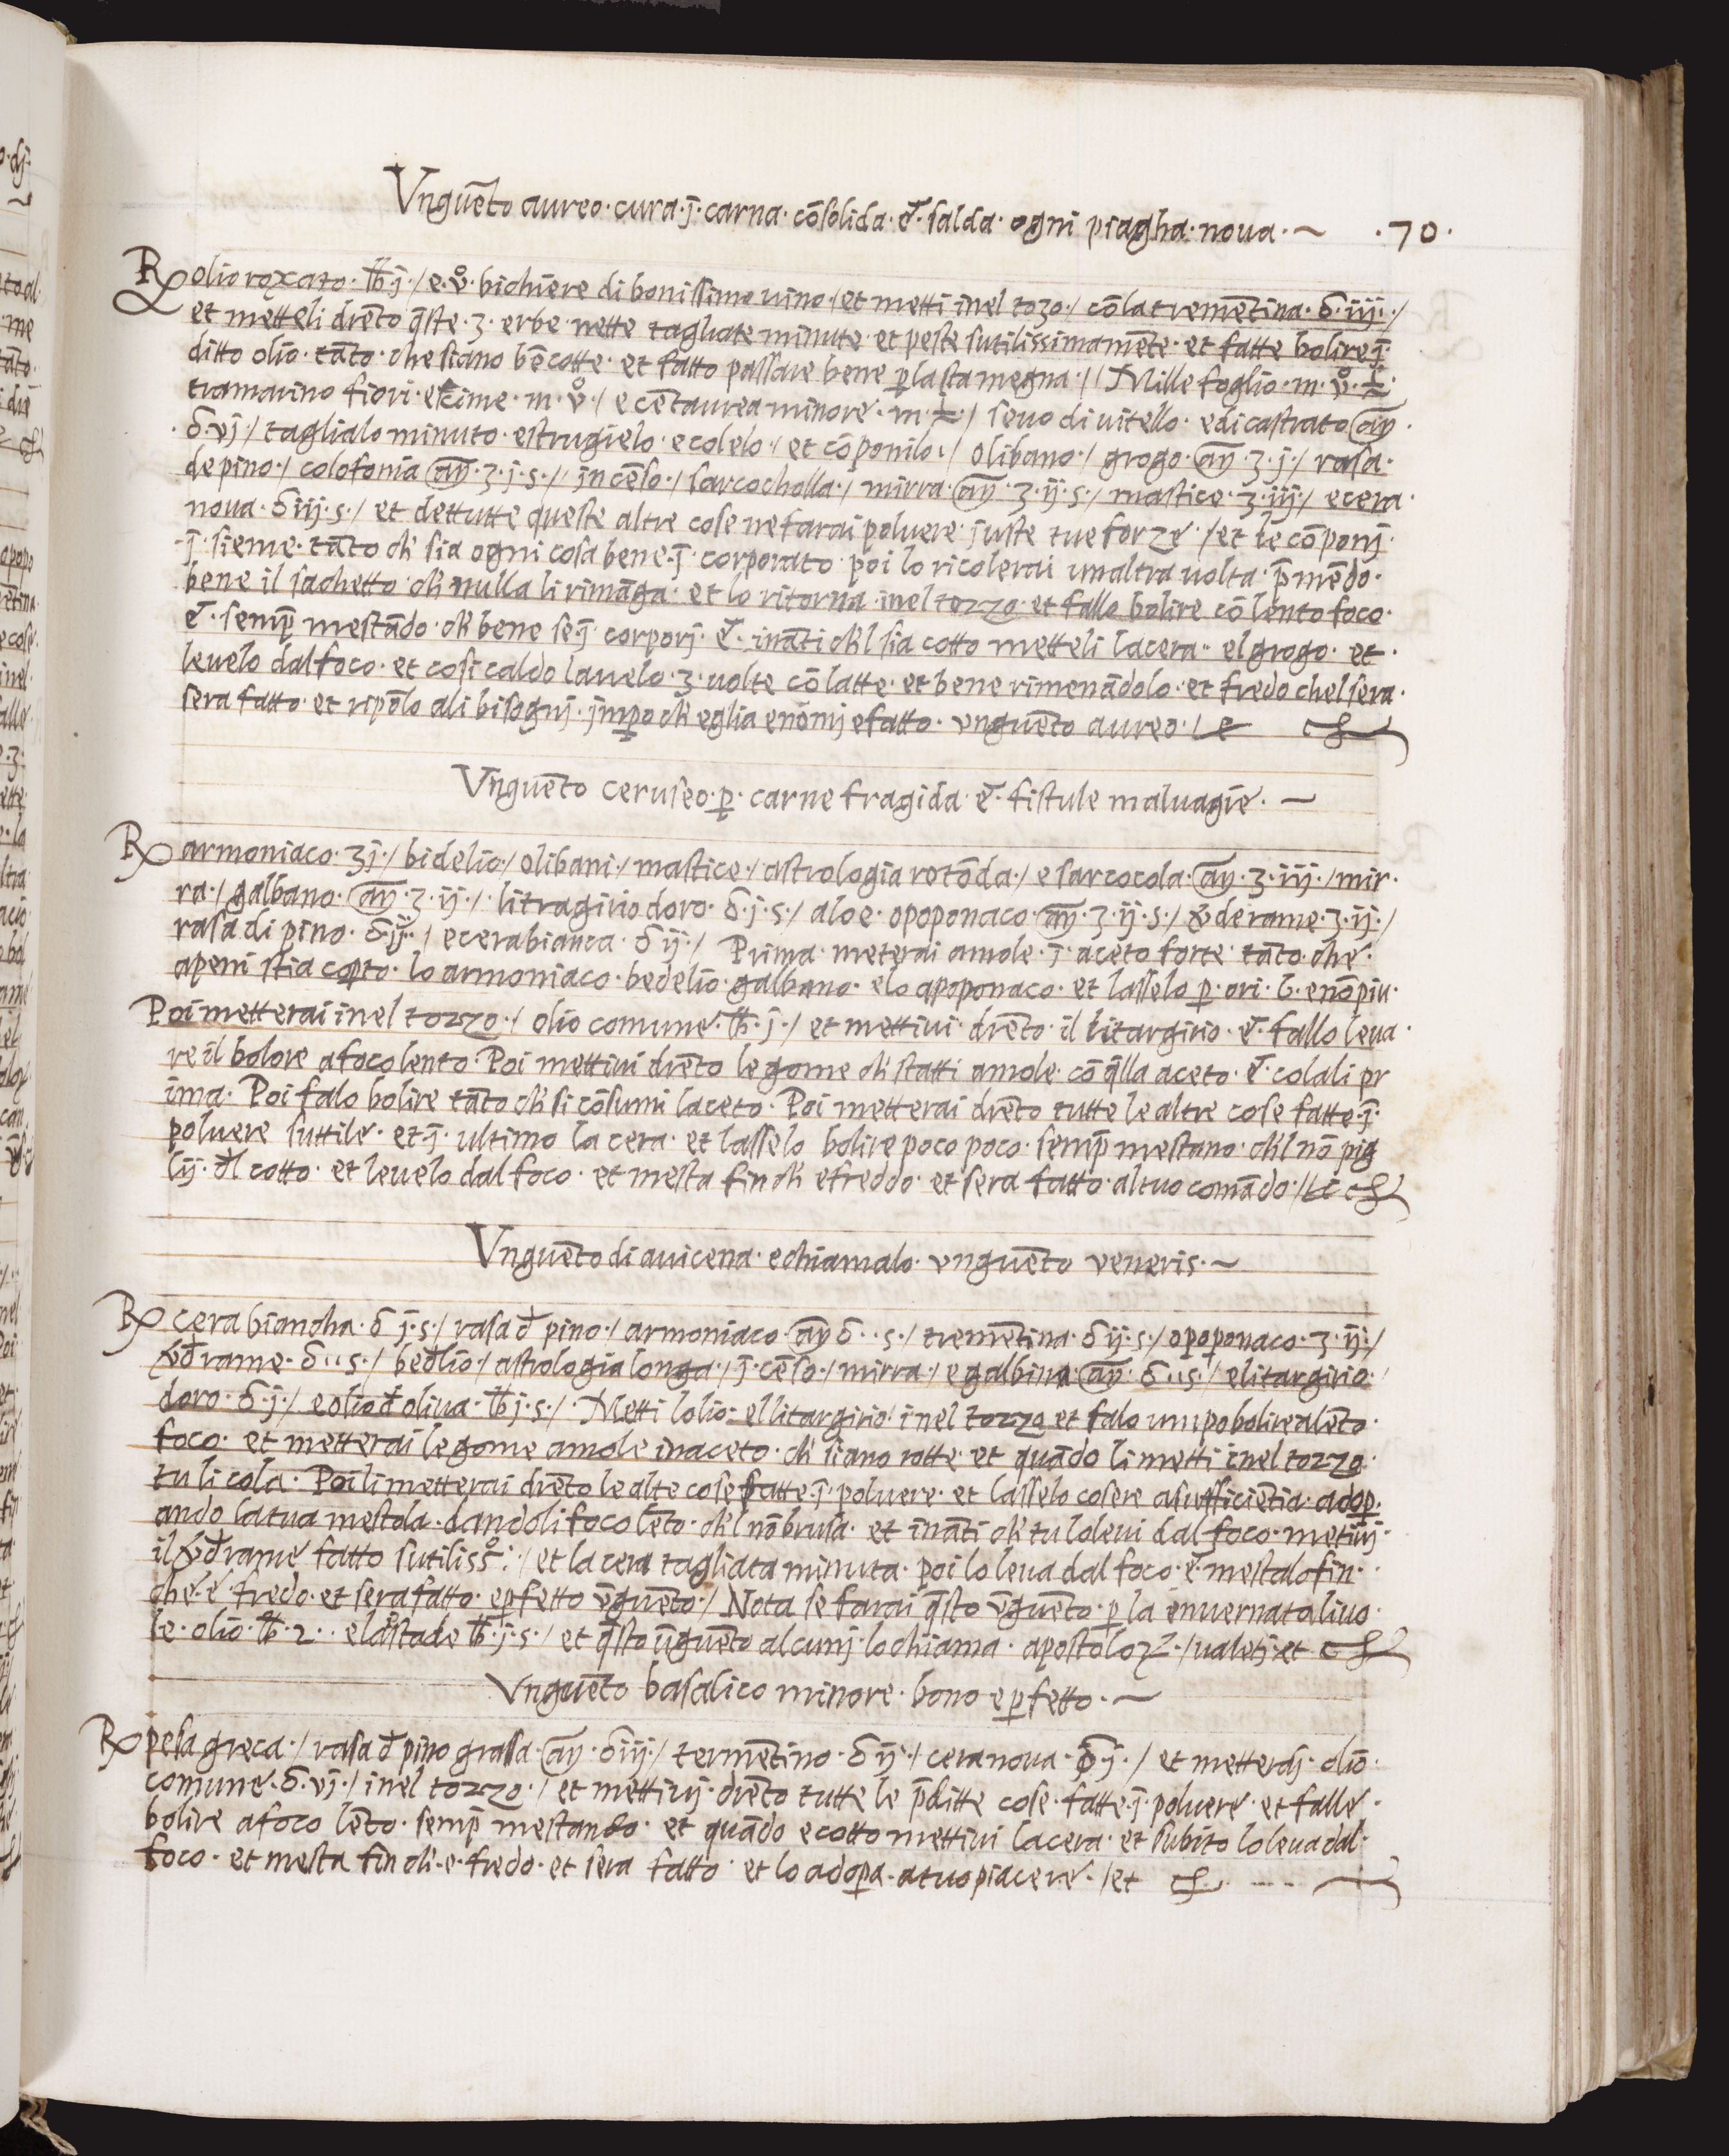 Vnguēto aureo · cura · j̄ · carna · cōsolida · & · salda · ogni piagha · noua · ~ · 70 ·
Rx olio roxato · ℔ j · / e · v̊ · bichiere di bonissimo uino · / et metti inel tozo · / cō la tremētina · δ · iij · /
et metteli drēto q̄ste · 3 · erbe nette tagliate minute · et peste sutilissimamēte · et fatte bolire j̄ ·
ditto olio · tāto · che siano bē cotte · et fatto passare bene p la stamegna · / / Mille foglio · m · v̊ ·
tramarino fiori · e cime · m · v̊ · / e cētaurea minore · m · / seuo di uitello · e di castrato aȳ ·
· δ · vj · / taglialo minuto · estrugielo · e colelo · / et cōponilo · / olibano · / grogo · aȳ · ʒ · j · / rasa ·
de pino · / colofonia aȳ · ʒ · j · s · / incēso · / sarcocholla · / mirra · aȳ · ʒ · ij · s · / mastice · ʒ · iij · / e cera ·
noua · δ iij · s · / et dettutte queste altre cose ne farai poluere juste tue forze · / et le cōponj ·
j̄ · sieme · tāto ch' sia ogni cosa bene · j̄ · corporato poi lo ricolerai unaltra uolta · p̄mēdo ·
bene il sachetto · ch' nulla li rimāga · et lo ritorna inel tozzo · et fallo bolire cō lento foco ·
& · semp̄ mestādo · ch' bene se j̄ · corporj · & · ināti ch'l sia cotto metteli la cera · el grogo · et ·
leuelo dal foco · et cosi caldo lauelo · 3 · uolte cō latte · et bene rimenādolo · et fredo chel sera ·
sera fatto · et ripōlo ali bisognj · jmpo ch' eglia enōmj e fatto · vnguēto aureo · /
Vnguēto ceruseo · p · carne fragida · & · fistule maluagie · ~
Rx armoniaco · ʒ j · / bidelio · / olibani · / mastice · / astrologia rotōda · / e sarcocola · aȳ · ʒ · iij · / mir ·
ra · / galbano · aȳ · ʒ · ij · / litragirio doro · δ · j · s · / aloe · opoponaco · aȳ · ʒ · ij · s · / v̶de rame · ʒ · ij · /
rasa di pino · δ · ij · / e cera bianca · δ ij · / Prima meterai amole · j̄ · aceto forte tāto che ·
apeni stia copto · lo armoniaco · bedelio · galbano · elo apoponaco · et lasselo p · ori · 6 · enō piu ·
Poi metterai inel tozzo · / olio comune · ℔ · j · / et mettiui drēto il litargirio · & · fallo leua ·
re il bolore a foco lento · Poi mettiui drēto le gome ch' statti amole · cō q̄lla aceto · & · colali pr
ima · Poi falo bolire tāto ch' si cōsumi laceto · Poi metterai drēto tutte le altre cose fatte · j̄ ·
poluere suttile · et j̄ · ultimo la cera · et lasselo bolire poco poco · semp̄ mestano · ch'l nō pig
lij · đl cotto · et leuelo dal foco · et mesta fin ch' e freddo · et sera fatto · al tuo comādo · /
Vnguēto di auicena · e chiamalo · vnguēto veneris · ~
Rx cera biancha · δ j · s · / rasa đ pino · / armoniaco · aȳ δ · · s · / tremētina · δ ij · s · / opoponaco · ʒ · ij · /
v̶đrame · δ · · s · / beđlio · / astrologia longa · / j̄ · cēso · / mirra · / e galbina · aȳ · δ · · s · / e litargirio ·
doro · δ · j · / e olio đ oliua · ℔ j · s · / Metti lolio · el litargirio inel tozzo et falo um po bolire a lēto ·
foco · et metterai le gome amole in aceto · ch' siano rotte · et quādo li metti inel tozzo ·
tu li cola · Poi li metterai drēto le alte cose fatte · j̄ · poluere · et lasselo cosere a sufficiētia · adop ·
ando la tua mestola · dandoli foco lēto · ch'l nō brusa · et ināti ch' tu lo leui dal foco · metiuj ·
il v̶đrame fatto sutiliss̊ : / et la cera tagliata minuta · poi lo leua dal foco · & · mestalo fin ·
che · e · fredo · et sera fatto · e pfetto v̄guēto · / Nota se farai q̄sto v̄guēto · p la enuernata liuo ·
le · olio · ℔ · 2 · · e la state ℔ · j · s · / et q̄sto v̄guēto alcunj · lo chiama · apostoloꝝ · / ualetj · et
Vnguēto basalico minore · bono e pfetto · ~
Rx pesa greca · / rasa đ pino grassa · aȳ · δ iij · / termētino · δ ij · / cera noua · δ j · / et metteraj · olio ·
comune · δ · vj · / inel tozzo · / et mettiuj · drēto tutte le p̄ditte cose · fatte · j̄ · poluere · et falle ·
bolire a foco lēto · semp̄ mestando · et quādo e cotto mettiui la cera · et subito lo leua dal ·
foco · et mesta fin ch' · e · fredo · et sera fatto et lo adopa · a tuo piacere · / et